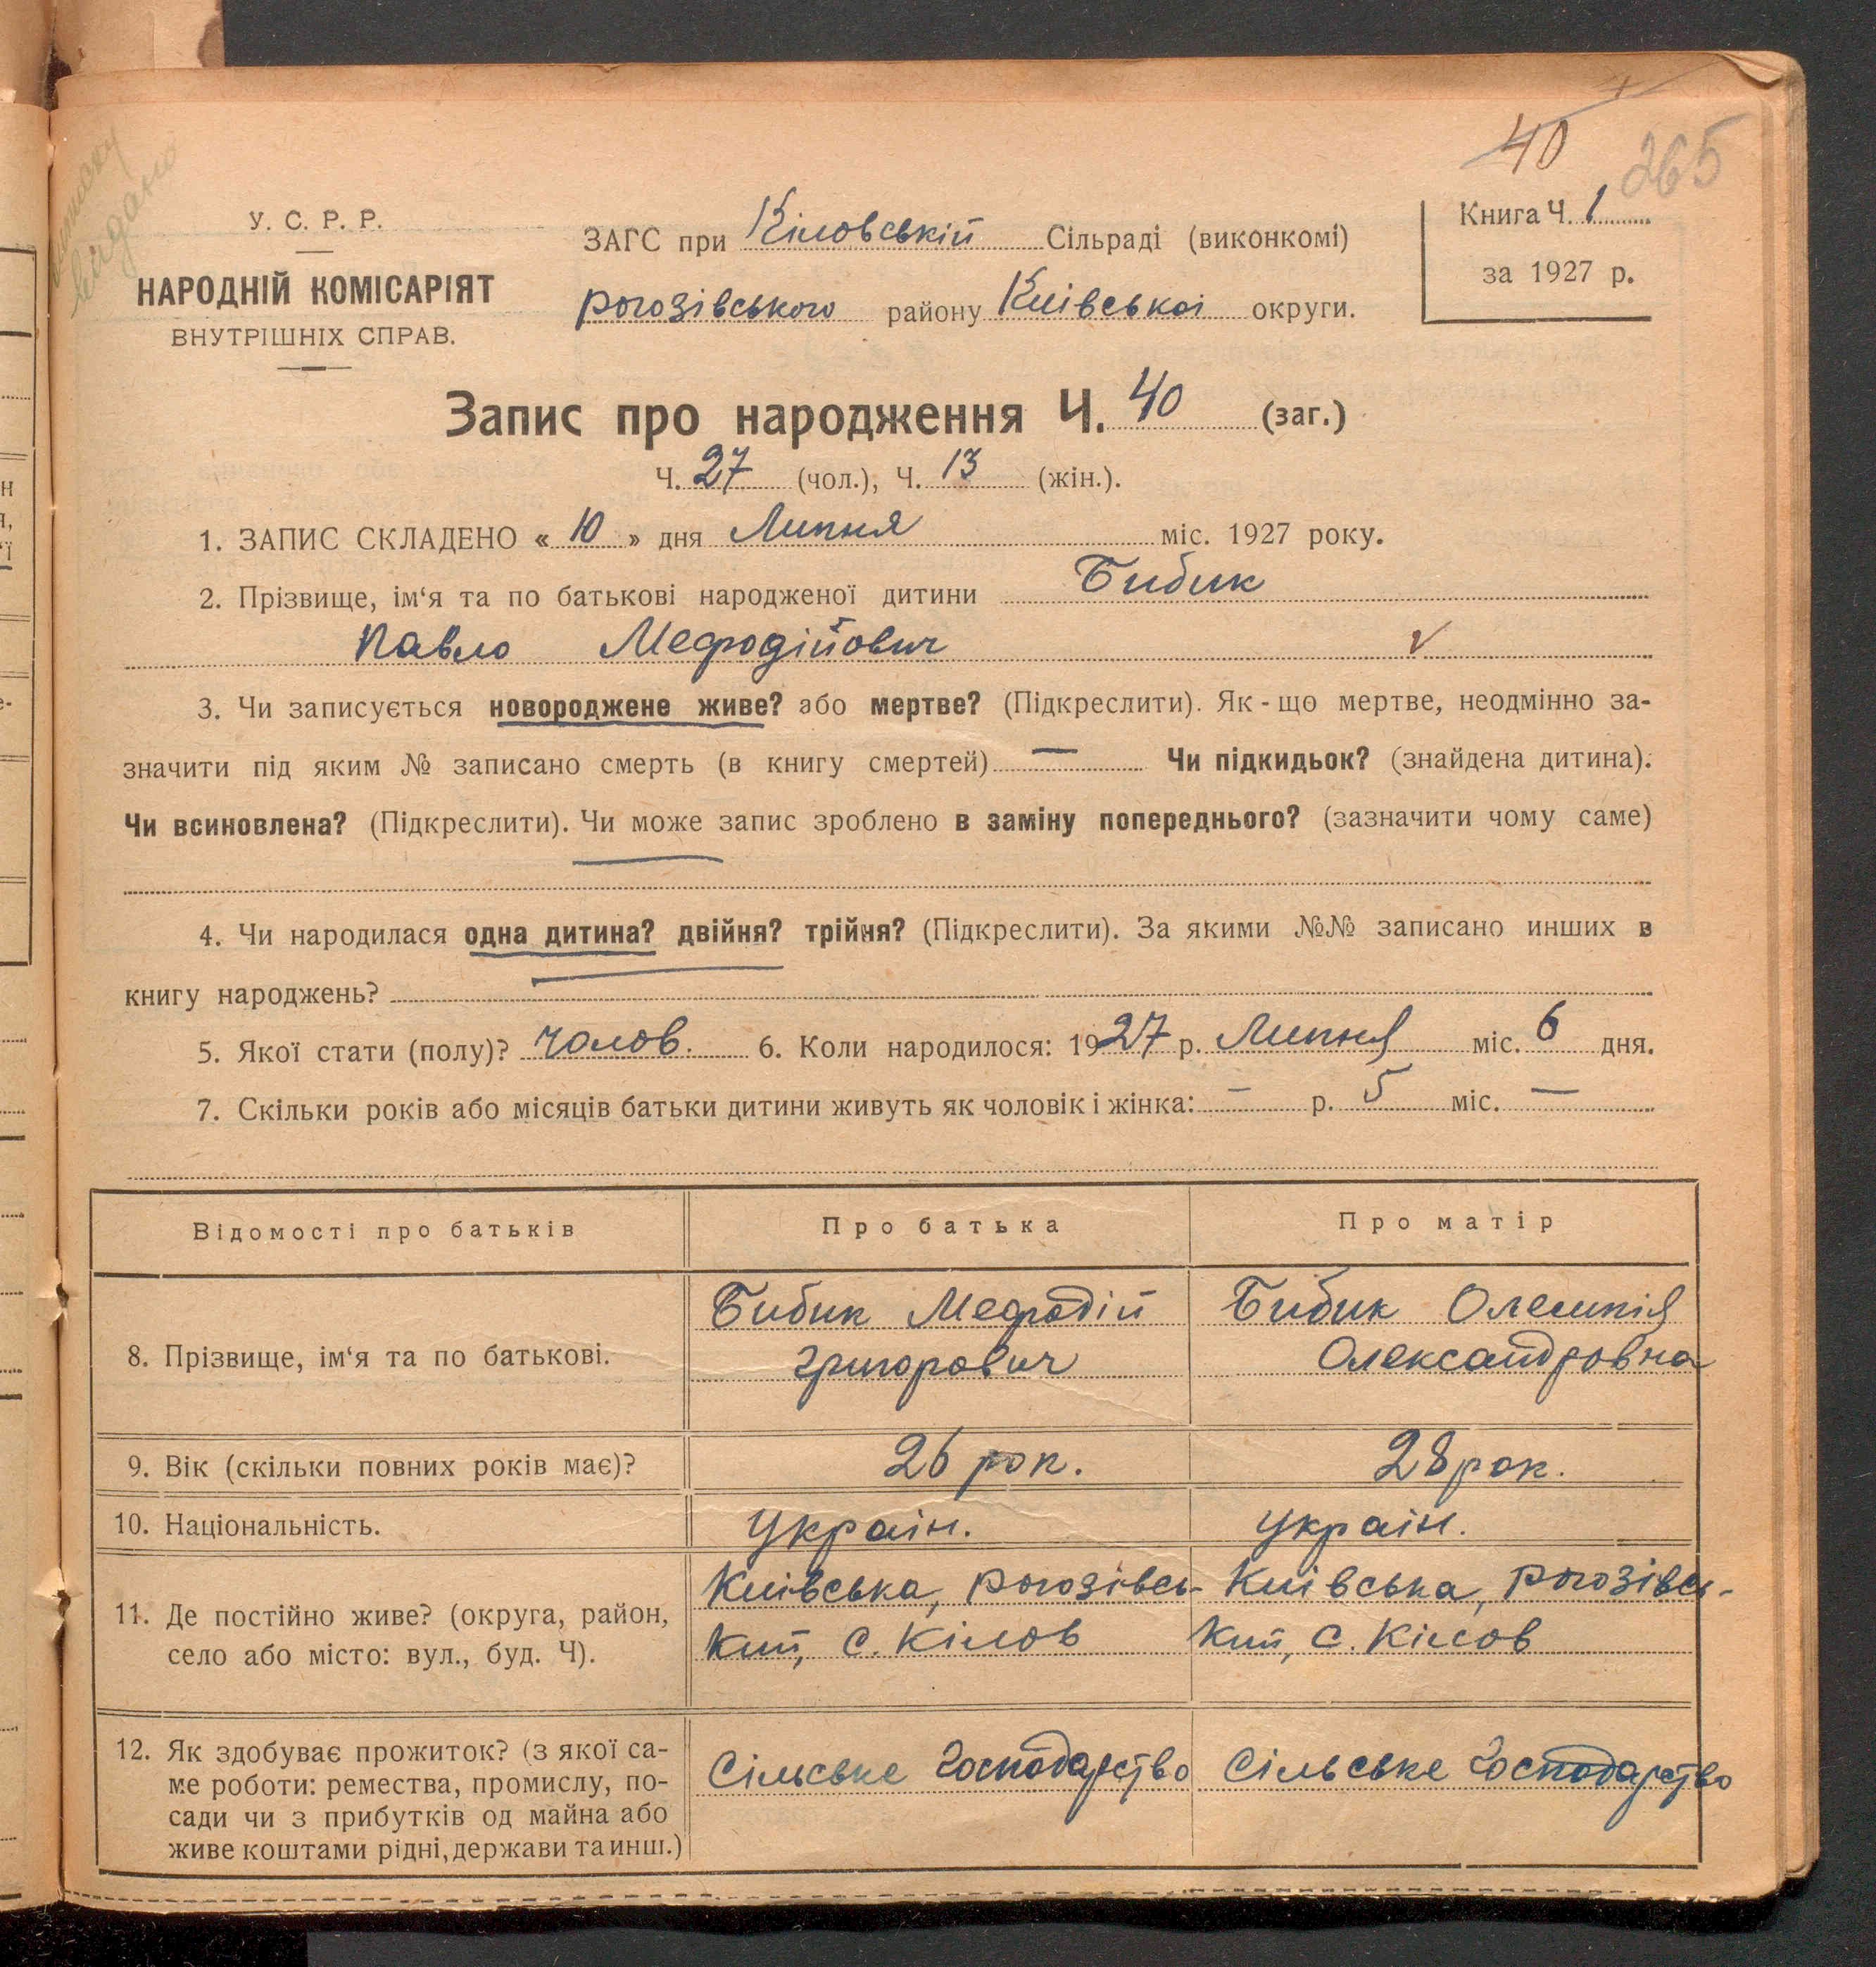 40 265
виписку
видано
У. С. Р. Р.
НАРОДНІЙ КОМІСАРІЯТ
ВНУТРІШНІХ СПРАВ.
ЗАГС при Кіловській Сільраді (виконкомі)
рогозівського району Київськоі округи.
Книга Ч. 1
за 1927 р.
Запис про народження Ч. 40 (заг.)
Ч. 27 (чол.), Ч. 13 (жін.).
1. ЗАПИС СКЛАДЕНО « 10 » дня Липня міс. 1927 року.
2. Прізвище, ім‘я та по батькові народженої дитини Бибик
Павло Мефодійович v
3. Чи записується новороджене живе? або мертве? (Підкреслити). Як-що мертве, неодмінно за-
значити під яким № записано смерть (в книгу смертей) — Чи підкидьок? (знайдена дитина).
Чи всиновлена? (Підкреслити). Чи може запис зроблено в заміну попереднього? (зазначити чому саме)
4. Чи народилася одна дитина? двійня? трійня? (Підкреслити). За якими №№ записано инших в
книгу народжень?
5. Якої стати (полу)? чолов. 6. Коли народилося: 1927 р. Липня міс. 6 дня.
7. Скільки років або місяців батьки дитини живуть як чоловік і жінка: — р. 5 міс. —
Відомості про батьків Про батька Про матір
8. Прізвище, ім‘я та по батькові.
Бибик Мефодій
григорович
Бибик Олемпія
Олександровна
9. Вік (скільки повних років має)? 26 рок. 28 рок.
10. Національність. Украін. Украін.
11. Де постійно живе? (округа, район,
село або місто: вул., буд. Ч).
Київська, рогозівсь-
кий, с. Кілов
Київська, рогозівсь-
кий, с. Кілов
12. Як здобуває прожиток? (з якої са-
ме роботи: ремества, промислу, по-
сади чи з прибутків од майна або
живе коштами рідні, держави та инш.)
Сільське Господарство
Сільське Господарство